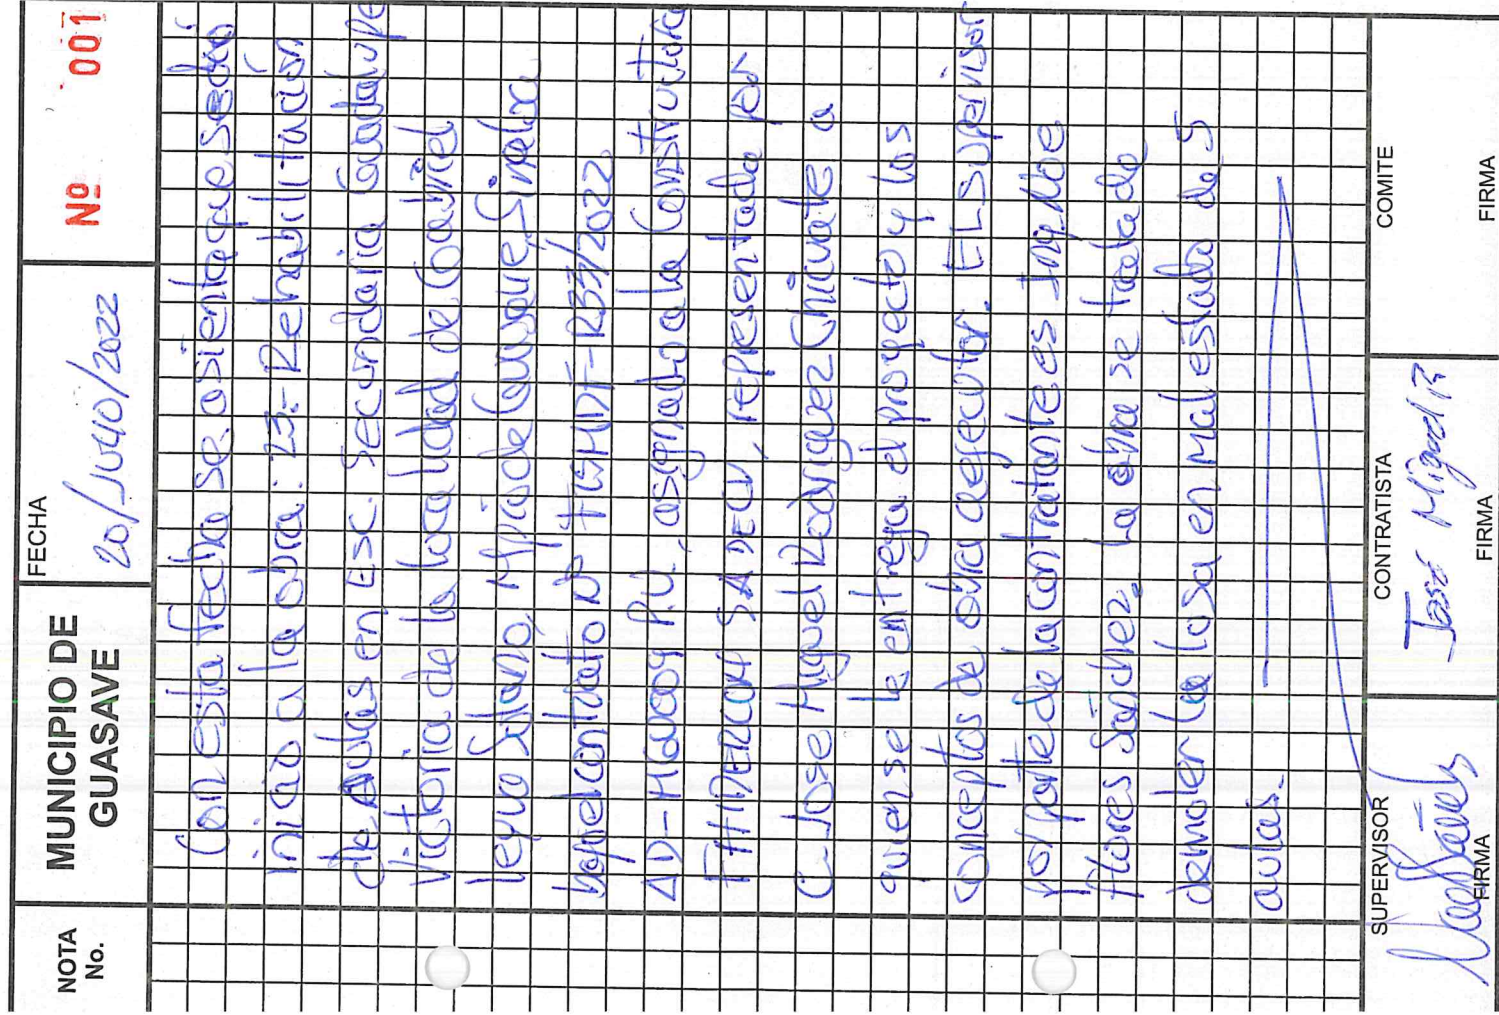 NOTA No.
MUNICIPIO DE GUASAVE
FECHA
20/Julio/2022
Nº 001
Con esta fecha se asienta que se dio
inicio a la obra: 23.- Rehabilitación
de Aulas en Esc. Secundaria Guadalupe
Victoria de la localidad de Gabriel
Leyva Solano, Mpio de Guasave, Sinaloa
bajo el contrato Nº FISMDF-R33/2022
P.U., asignado a la Constructora
SA DE CV, representada por
C. Jose Miguel Rodriguez Chicuate a
quien se le entrega el proyecto y los
conceptos de obra a ejecutar. EL Supervisor
por parte de la contratante es Ing. Noe
Flores Sánchez, La obra se trata de
demoler la losa en mal estado de 5
aulas.-
SUPERVISOR
FIRMA
CONTRATISTA
Jose Miguel R
FIRMA
COMITE
FIRMA